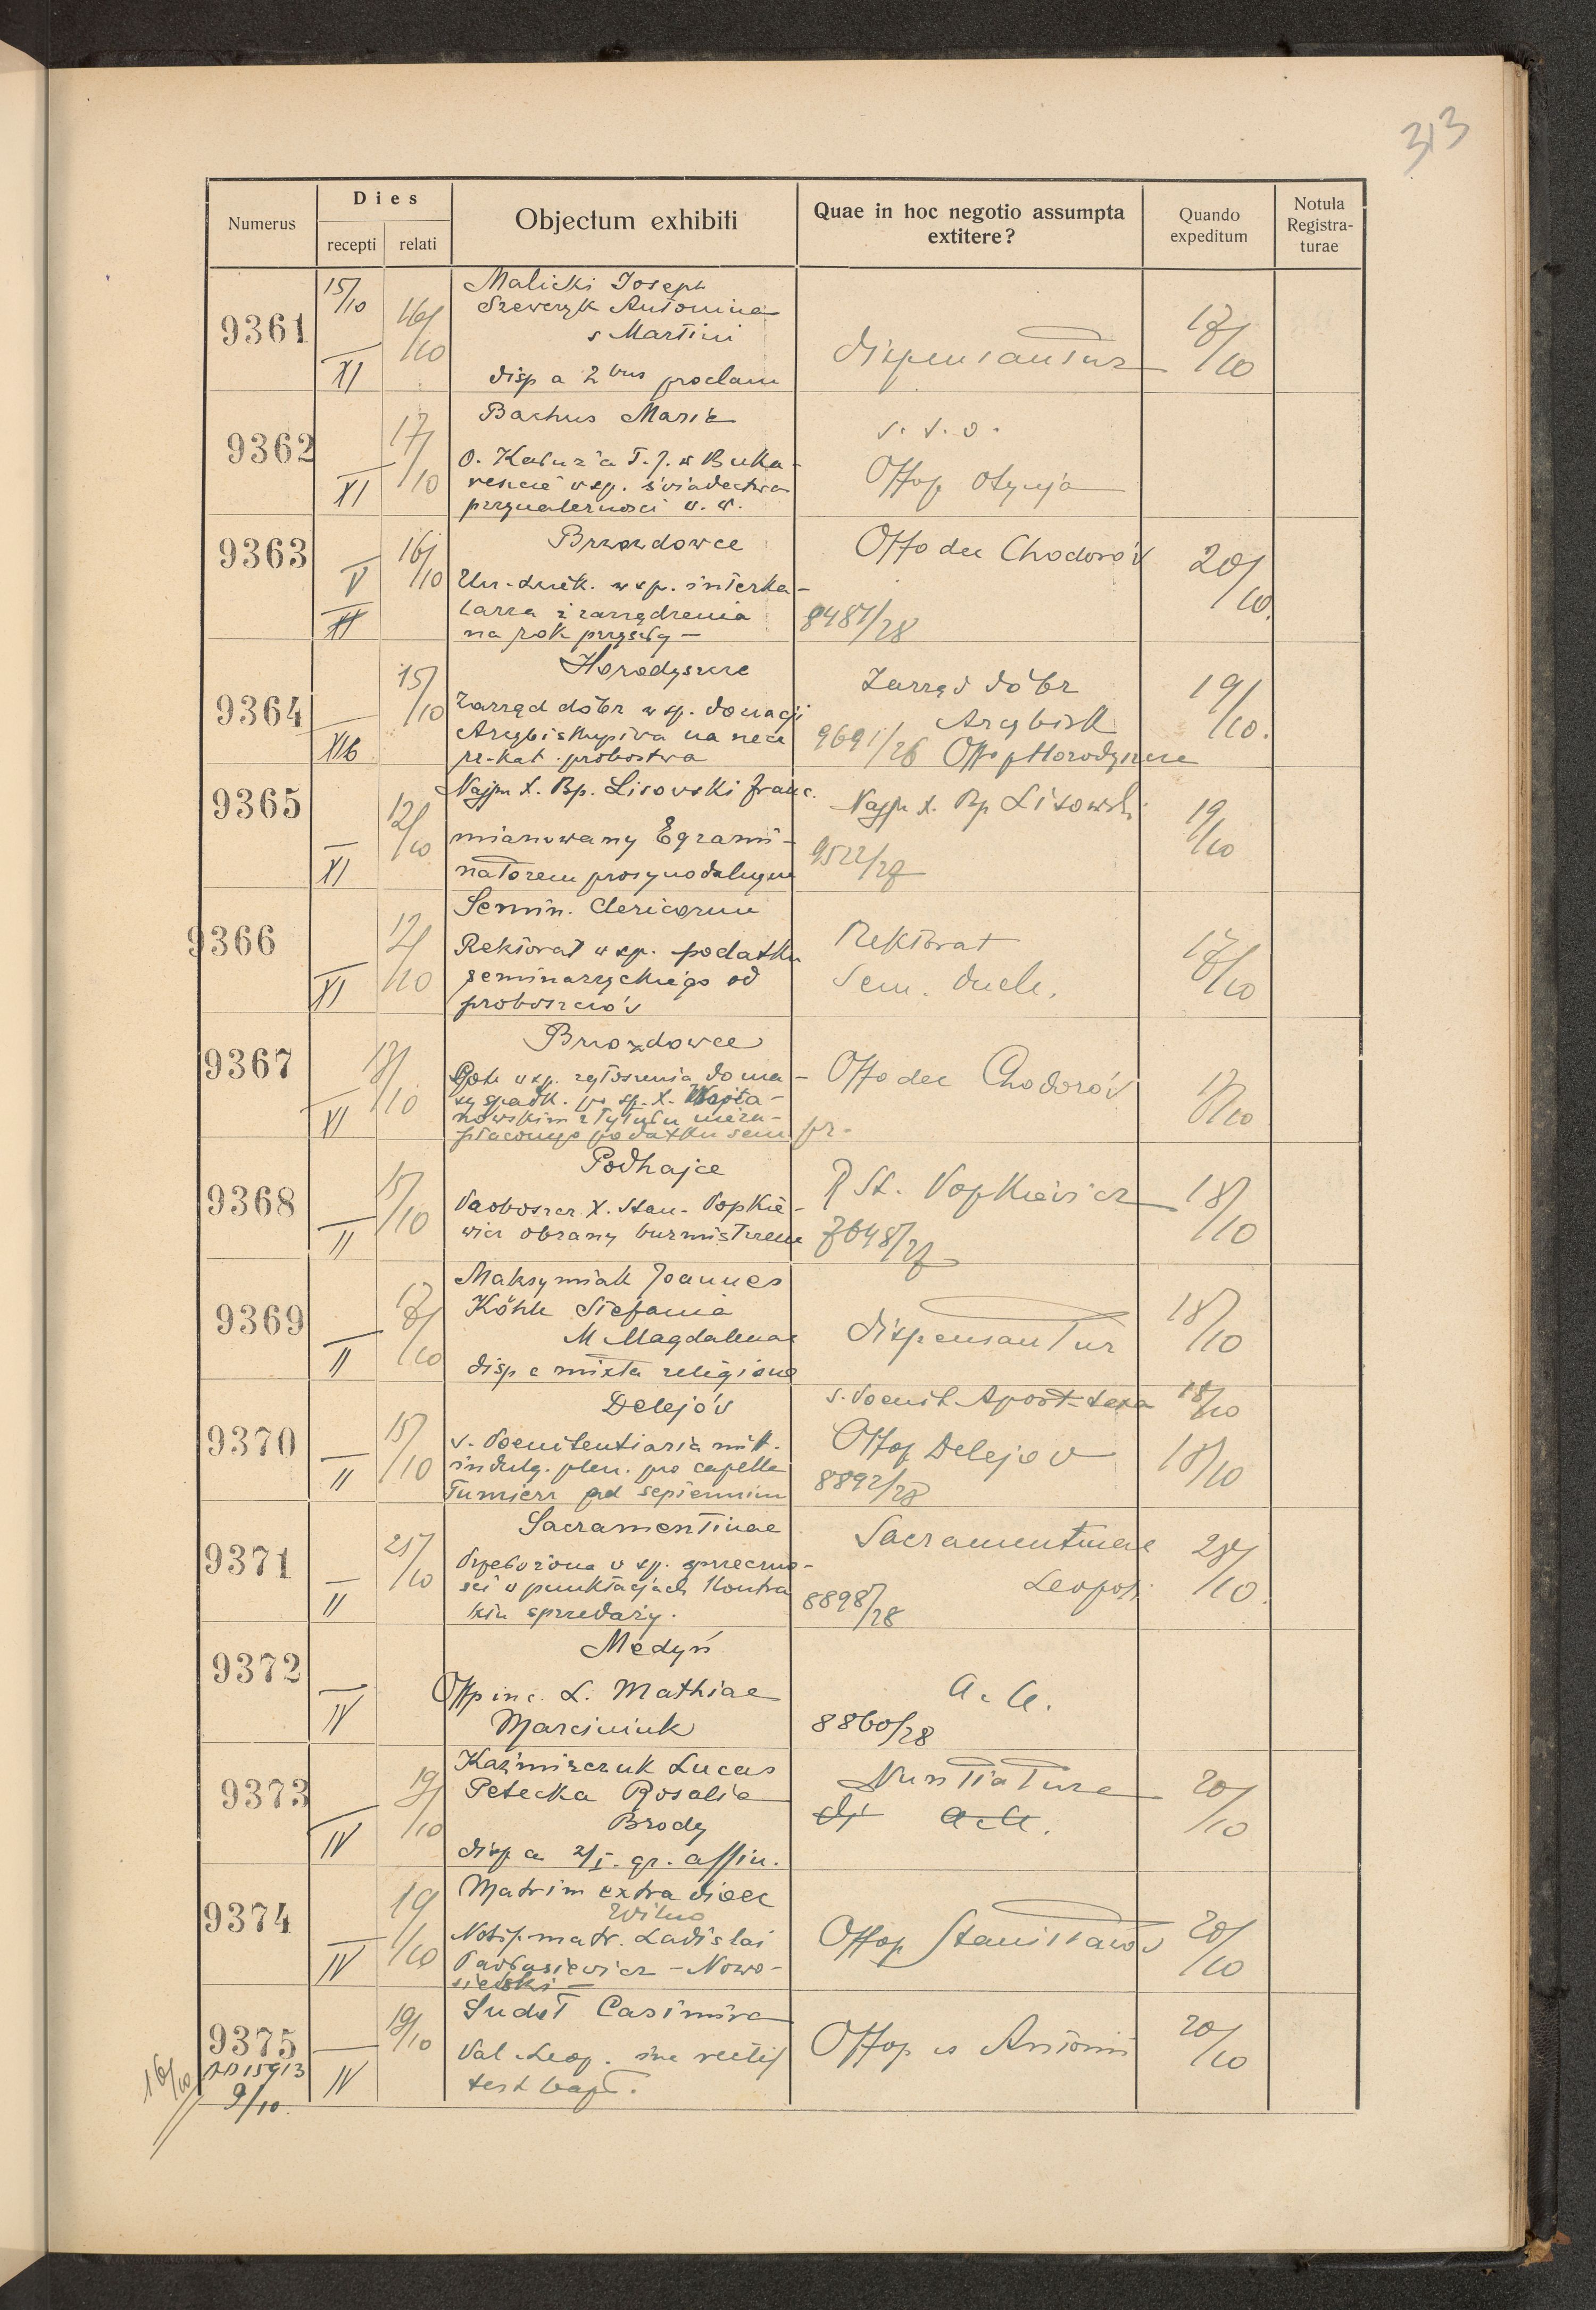 313
Numerus
Dies
recepti relati
Objectum exhibiti
Quae in hoc negotio assumpta
extitere?
Quando
expeditum
Notula
Registra-
turae
9361
15/10
XI
16/10
Malicki Joseph
Szewczyk Antonina
s Martini
disp a 2bus proclam
dispensantur
17/10
9362
XI
17/10
Bachus Maria
O. Kałuża T. J. w Buka-
reszcie wsp. świadectwa
przynależności
Offop Otynja
9363
V
XI
16/10
Brzozdowce
wsp. interka-
larza i zarządzenia
na rok przyszły —
Offo dec Chodorów
8481/28
20/10
9364
XIb
15/10
Horodyszcze
Zarząd dóbr wsp. donacji
Arcybiskupiwa na rzecz
probostwa
Zarząd dóbr
Arcybisk
9691/26 Offop Horodyszcze
19/10.
9365
XI
12/10
Najpu X. Bp. Lisowski Franc.
mianowany Egzami-
natorem prosynodalnym
Najpu X. Bp Lisowski
9522/27
19/10
9366
XI
17/10
Semin. Clericorum
Rektorat wsp. podatku
seminaryckiego od
proboszczów
Rektorat
Sem. duch.
17/10
9367
XI
17/10
Brzozdowce
wsp. zgłoszenia do ma-
sy spadk. po śp. X. Wojta-
nowskim z tytułu nieza-
płaconego podatku sem
Offo dec Chodorów
pr.
17/10
9368
II
15/10
Podhajce
Proboszcz X. Stan. Popkie-
wicz obrany burmistrzem
R St. Popkiewicz
7648/27
18/10
9369
II
17/10
Maksymiak Joannes
Köhle Stefania
M Magdalenae
disp a mixta religione
dispensantur
18/10
9370
II
15/10
Delejów
s. Poenitentiaria mitt.
indulg. plen. pro capella
Tumierz ad septennium
s. Poenit. Apost. taxa
18/10
Offop Delejow
8892/28
18/10
9371
II
25/10
Sacramentinae
Przełożona wsp. sprzeczno-
ści w punktacjach kontra
ktu sprzedaży.
Sacramentinae
Leopoli
8898/28
28/10.
9372
IV
Medyń
Offp inc. L. Mathiae
Marciniuk
a. a.
8860/28
9373
IV
19/10
Kaźmierczuk Lucas
Petecka Rosalia
Brody
disp a 2/I. gr. affin.
Nuntiatura
di a a.
20/10
9374
IV
19/10
Matrim extra dioec
Wilno
Notif. matr. Ladislai
Pawłusiewicz - Nowo-
sielski —
Offop Stanisławów
20/10
9375
IV
19/10
Sudoł Casimira
Val Leop. rectif
test bapt.
Offop s Antonii
20/10
16/10
15913
9/10